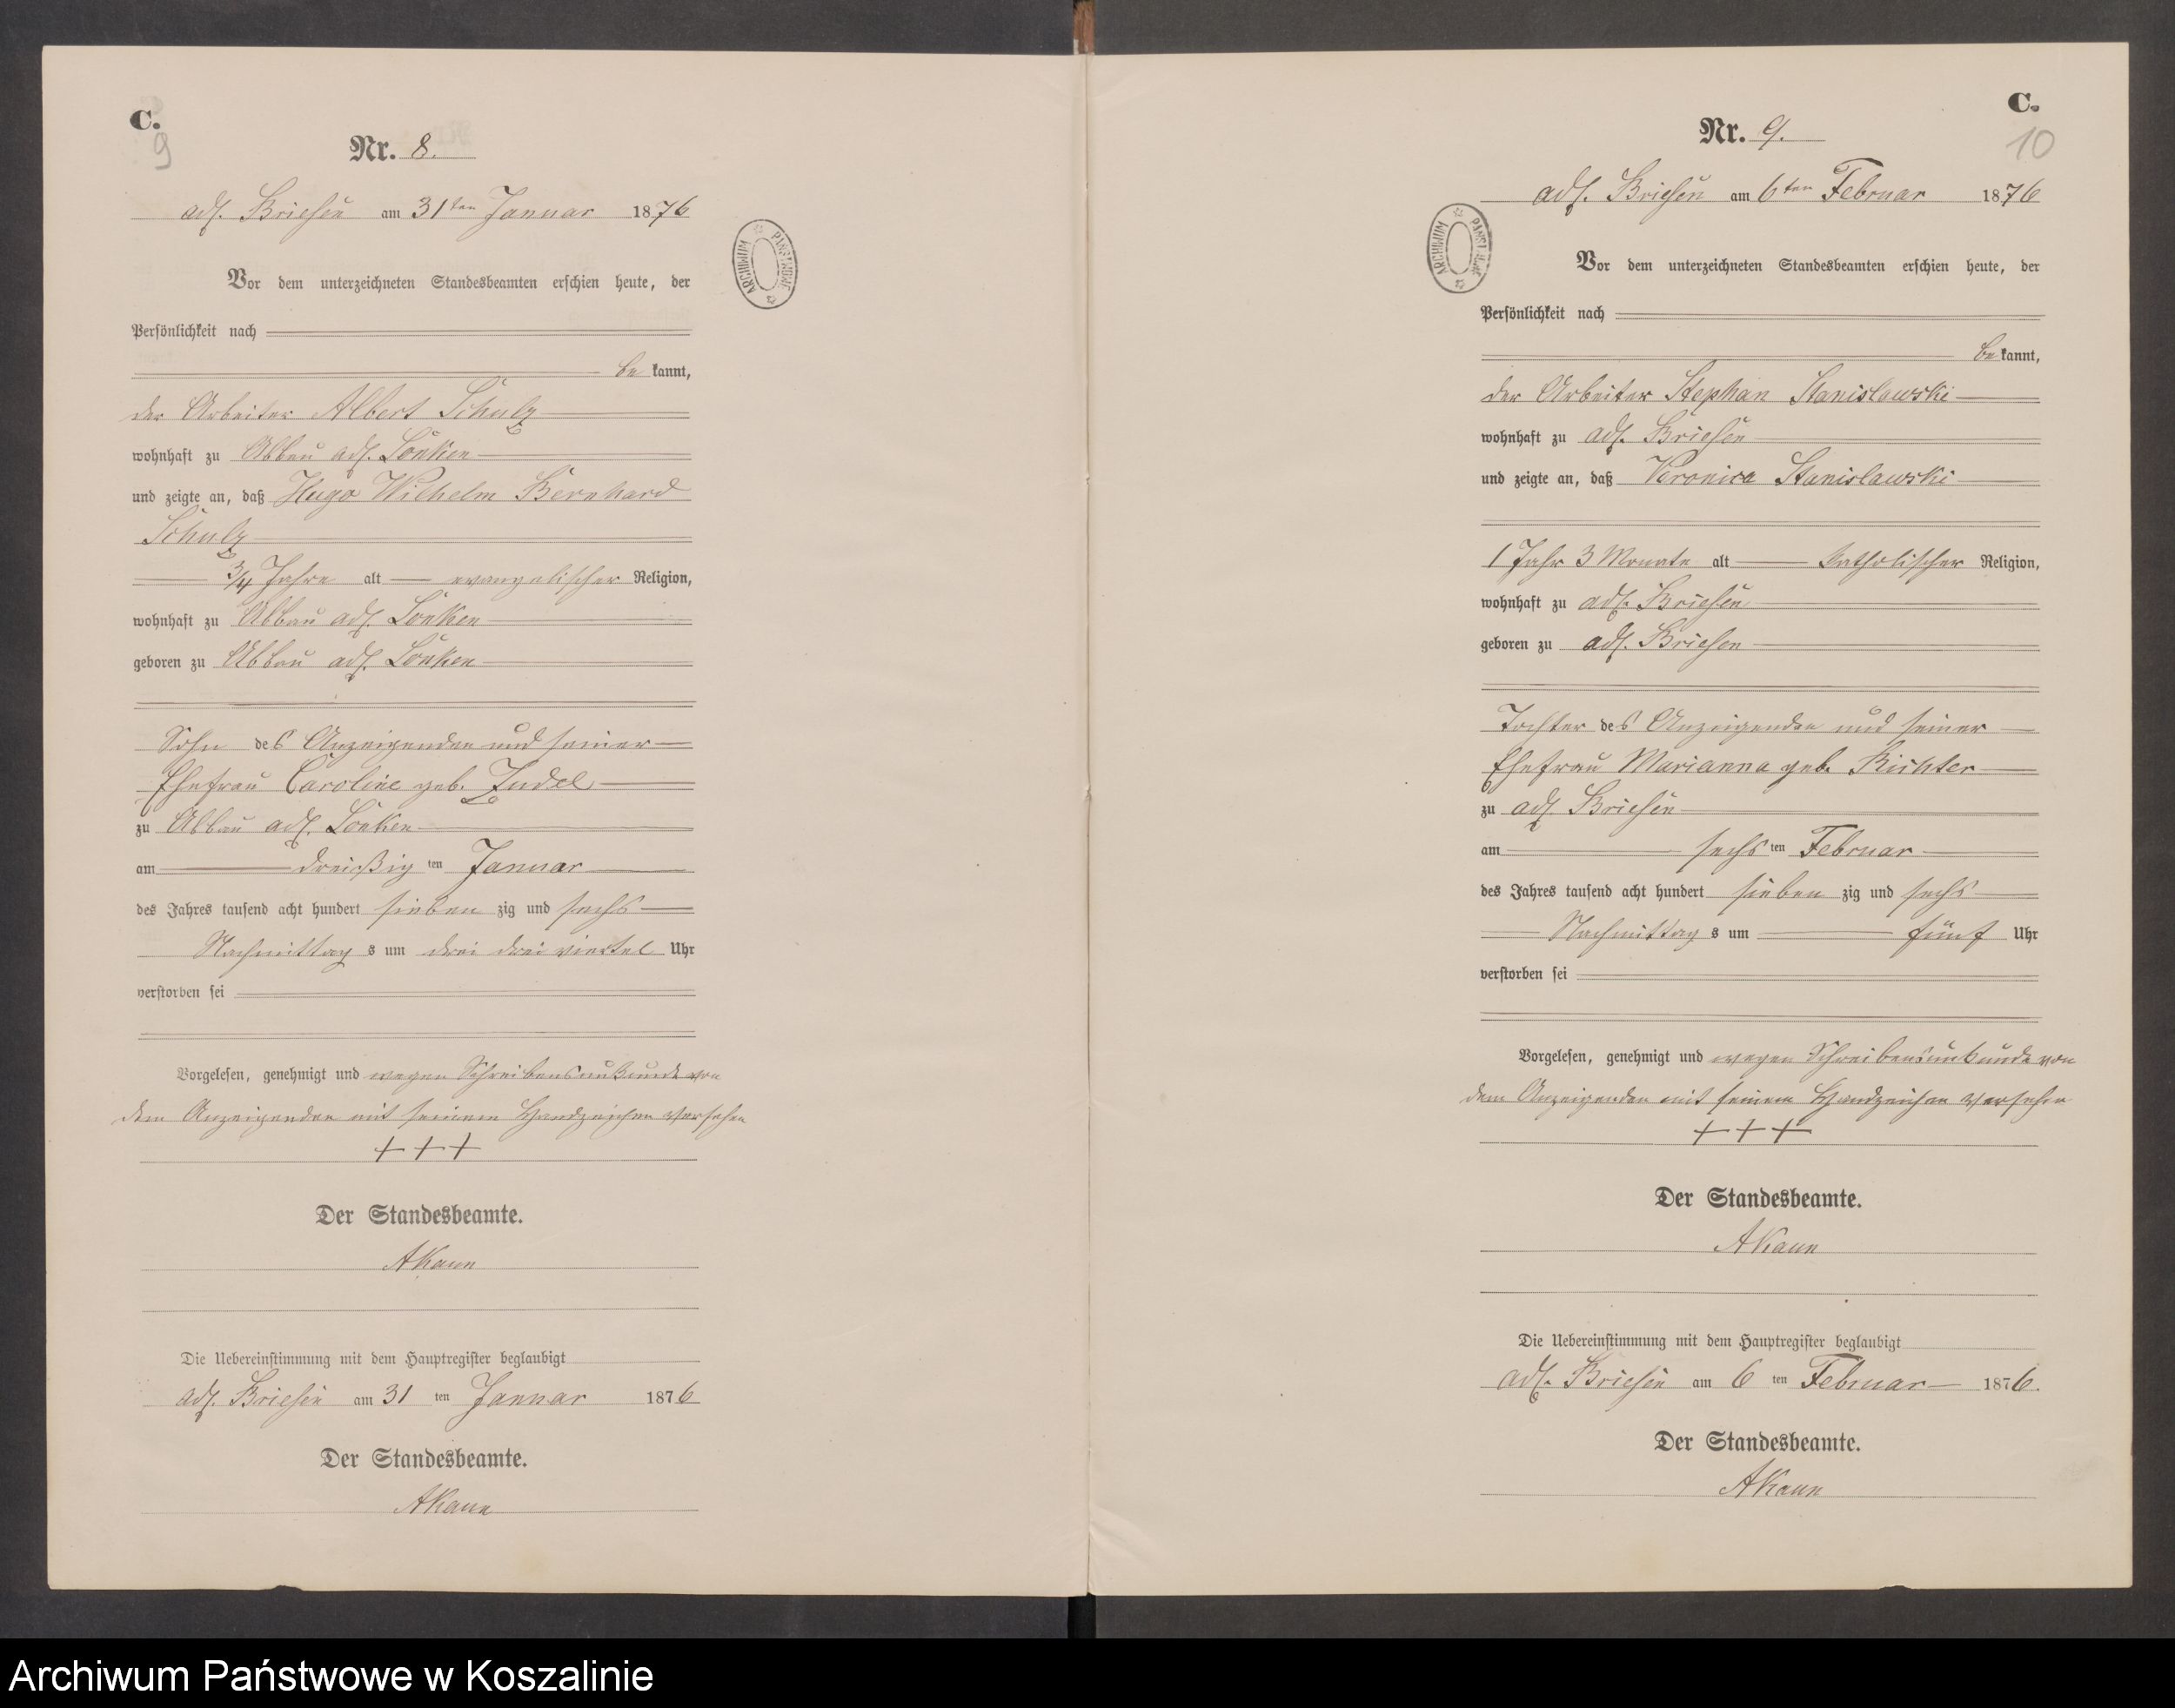 C.
9
Nr. 8.
adl. Briesen am 31ten Januar 1876
Vor dem unterzeichneten Standesbeamten erschien heute, der
Persönlichkeit nach
be kannt,
der Arbeiter Albert Schulz
wohnhaft zu Abbau adl. Lonken
und zeigte an, daß Hugo Wilhelm Bernhard
Schulz
3/4 Jahre alt evangelischer Religion,
wohnhaft zu Abbau adl. Lonken
geboren zu Abbau adl. Lonken
Sohn des Anzeigenden und seiner
Ehefrau Caroline geb. Zudel
zu Abbau adl. Lonken
am dreißig ten Januar
des Jahres tausend acht hundert sieben zig und sechs
Nachmittag s um drei drei viertel Uhr
verstorben sei
Vorgelesen, genehmigt und wegen Schreibensunkunde von
dem Anzeigenden mit seinem Handzeichen versehen
+++
Der Standesbeamte.
AKaun
Die Uebereinstimmung mit dem Hauptregister beglaubigt
adl. Briesen am 31 ten Januar 1876
Der Standesbeamte.
AKaun
ARCHIWUM PAŃSTWOWE
C.
10
Nr. 9.
adl. Briesen am 6ten Februar 1876
Vor dem unterzeichneten Standesbeamten erschien heute, der
Persönlichkeit nach
be kannt,
der Arbeiter Stephan Stanislawski
wohnhaft zu adl. Briesen
und zeigte an, daß Veronica Stanislawski
1 Jahr 3 Monate alt katholischer Religion,
wohnhaft zu adl. Briesen
geboren zu adl. Briesen
Tochter des Anzeigenden und seiner
Ehefrau Marianna geb. Richter
zu adl. Briesen
am sechs ten Februar
des Jahres tausend acht hundert sieben zig und sechs
Nachmittag s um fünf Uhr
verstorben sei
Vorgelesen, genehmigt und wegen Schreibensunkunde von
dem Anzeigenden mit seinem Handzeichen versehen
+++
Der Standesbeamte.
AKaun
Die Uebereinstimmung mit dem Hauptregister beglaubigt
adl. Briesen am 6 ten Februar 1876.
Der Standesbeamte.
AKaun
ARCHIWUM PAŃSTWOWE
Archiwum Państwowe w Koszalinie